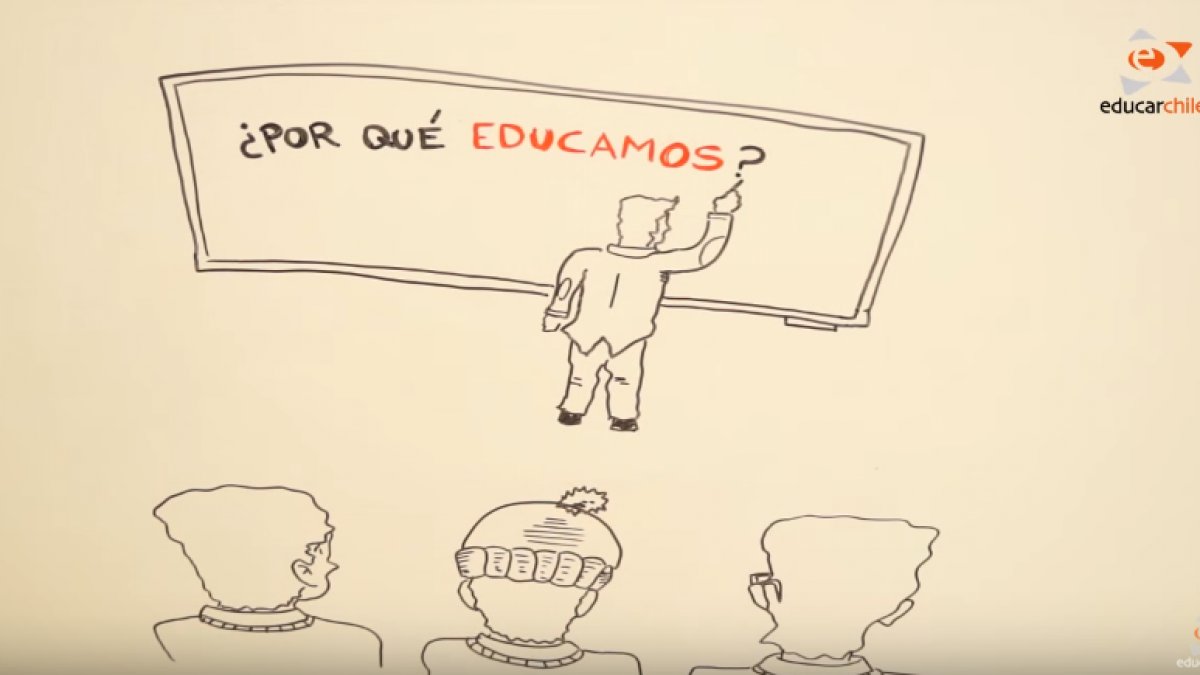 ¿POR QUÉ EDUCAMOS?
e
educarchile
educ